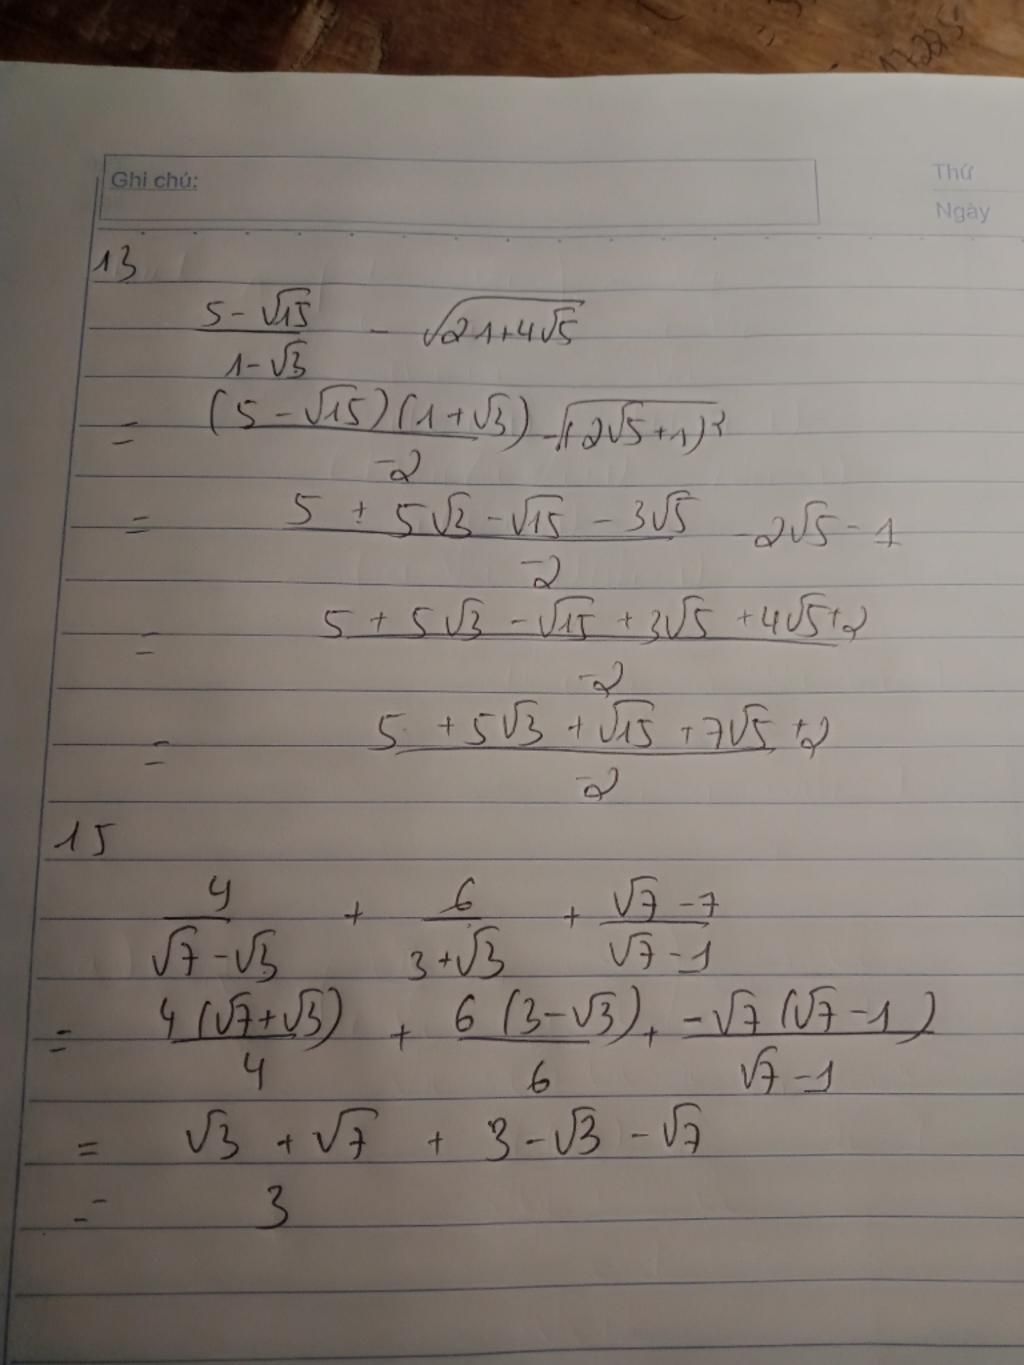 17225
Ghi chú:
Thứ
Ngày
13
(5 - √15)/(1 - √3) - √(21 + 4√5)
= (5 - √15)(1 + √3)/-2 - √(2√5 + 1)²
= (5 + 5√3 - √15 - 3√5)/-2 - 2√5 - 1
= (5 + 5√3 - √15 + 3√5 + 4√5 + 2)/-2
= (5 + 5√3 + √15 + 7√5 + 2)/-2
15
4/(√7 - √3) + 6/(3 + √3) + (√7 - 7)/(√7 - 1)
= 4(√7 + √3)/4 + 6(3 - √3)/6 + -√7(√7 - 1)/(√7 - 1)
= √3 + √7 + 3 - √3 - √7
= 3